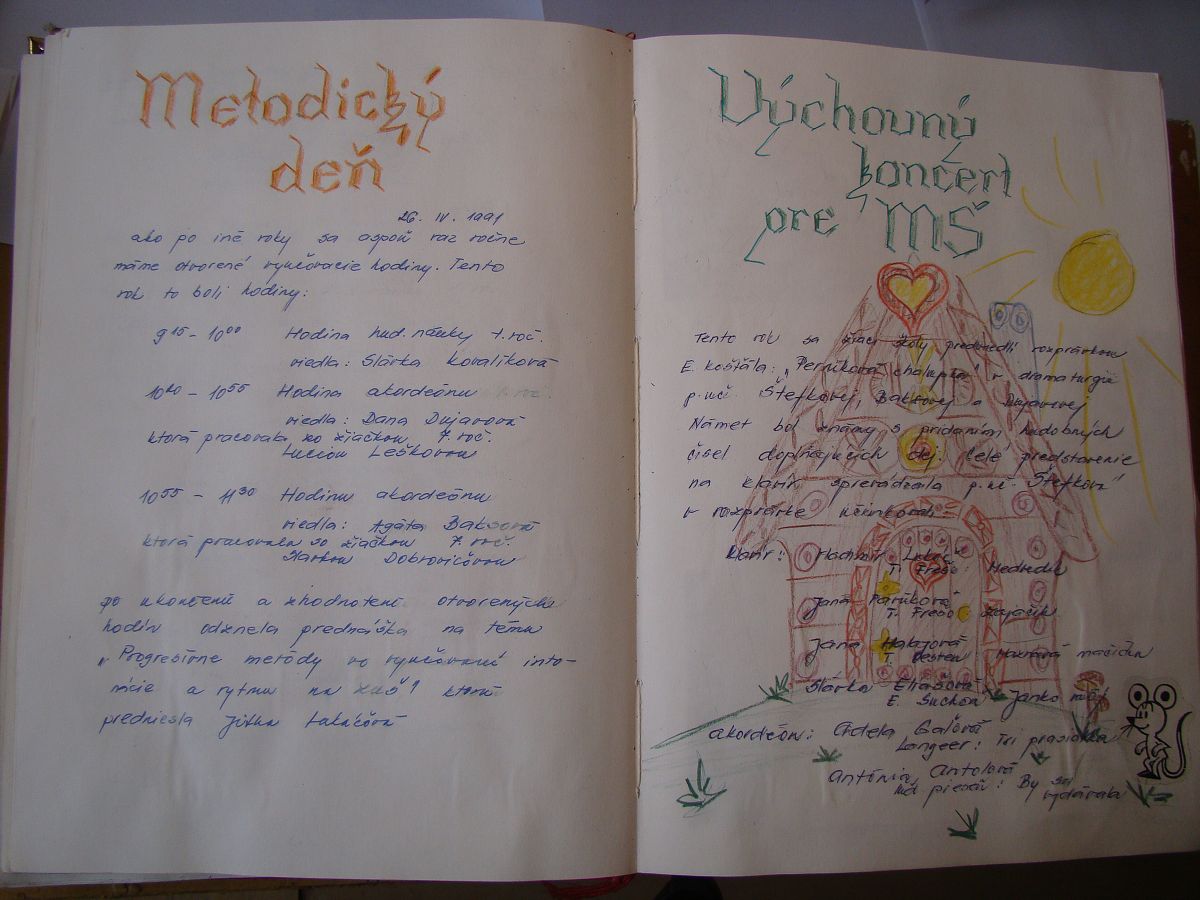 Metodický
deň
26. IV. 1991
ako po iné roky sa aspoň raz ročne
máme otvorené vyučovacie hodiny. Tento
rok to boli hodiny:
9 15 - 10 00 Hodina hud. náuky 1. roč.
viedla: Slávka Kovalíková
10 20 - 10 55 Hodina akordeónu
viedla: Dana Dujavová
ktorá pracovala so žiačkou 7. roč.
Luciou Leškovou
10 55 - 11 30 Hodinu akordeónu
viedla: Agáta Baksová
ktorá pracovala so žiačkou 7. roč.
Slávkou Dobrovičovou
po ukončení a zhodnotení otvorených
hodín odznela prednáška na tému
"Progresívne metódy vo vyučovaní into-
nácie a rytmu na ZUŠ" ktorú
predniesla Jitka Lukáčová
Výchovný
končert
pre MŠ
Tento rok sa žiaci školy predviedli rozprávkou
E. Košťála: "Perníková chalúpka" v dramaturgii
p. uč. Štefkovej, Baksovej a Dujavovej
Námet bol známy s pridaním hudobných
čísel doplňujúcich dej. Celé predstavenie
na klavíri sprevádzala p. uč. Štefková
v rozprávke účinkovali:
Klavír: Vladimír Lukáč
T. Frešo: Medveďku
Jana Paríková
T. Frešo: Zajačik
Jana
T. Vesten mačička
Slávka Eliašová
E. Suchoň Janko
akordeón: Adela Galčová
Langeer: Tri prasiatka
Antónia Antolová
ľud. pieseň: By sa
vydávala